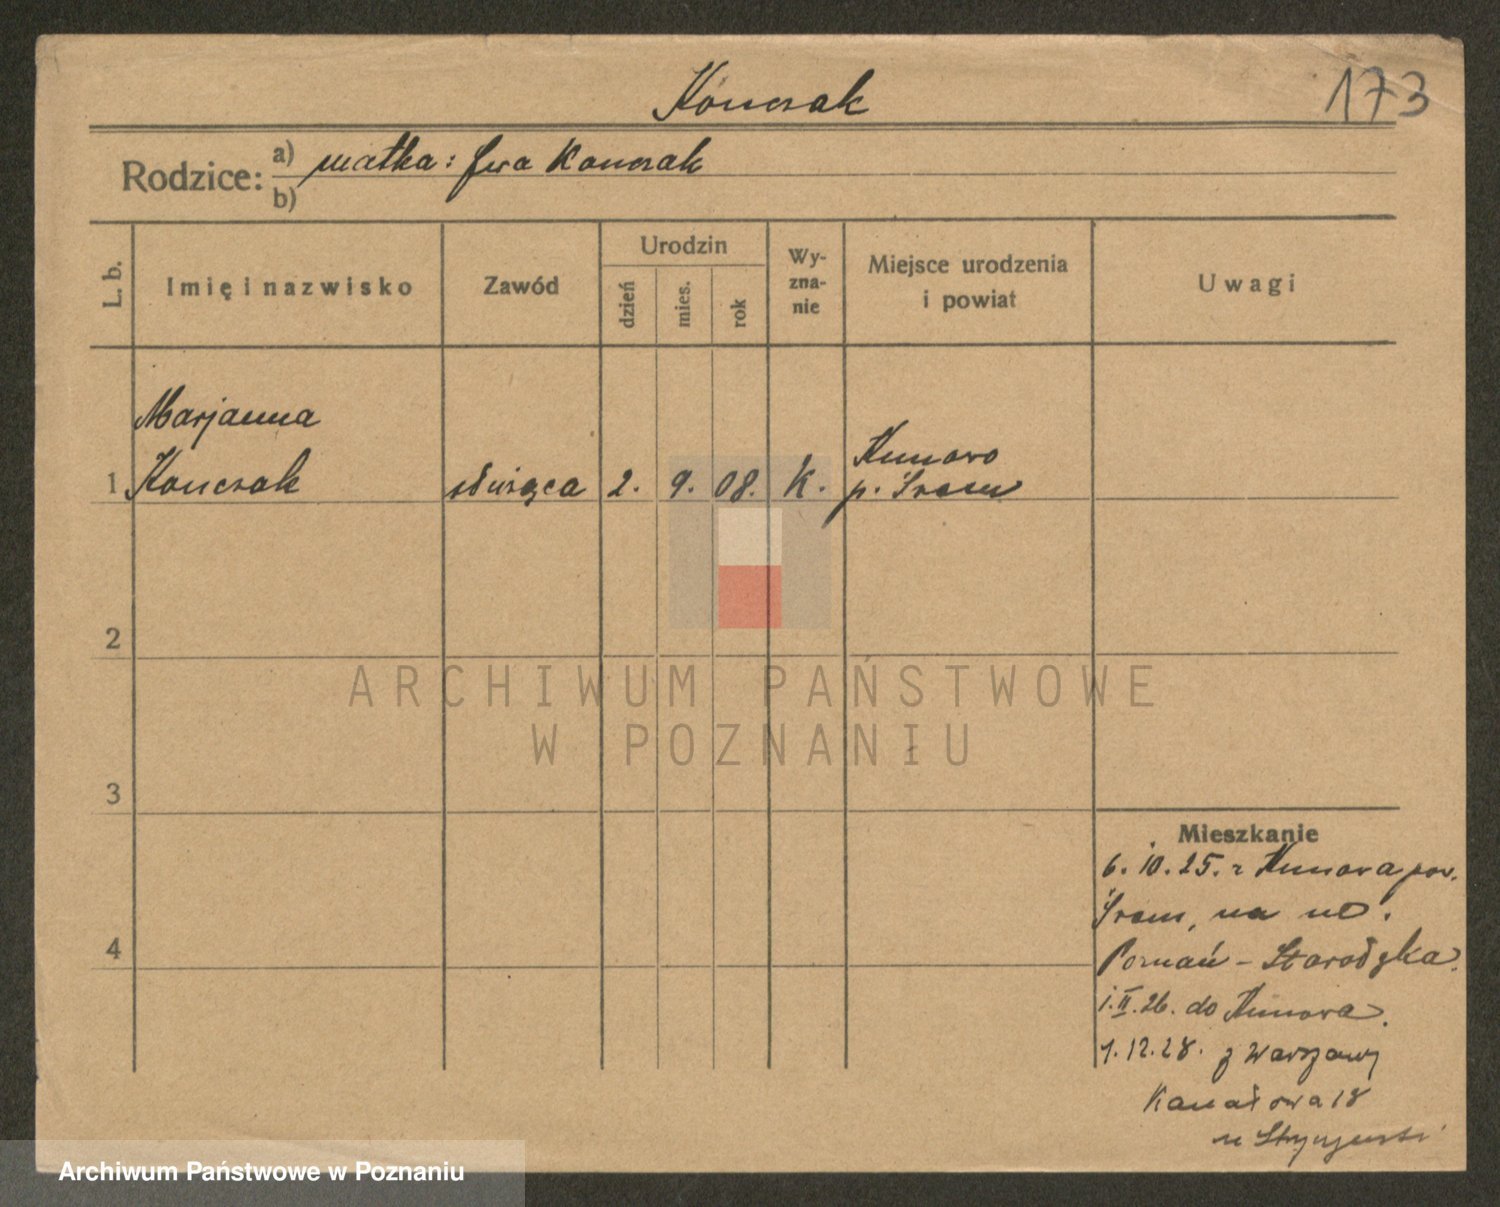 Konczak
173
Rodzice: a) matka: Ewa Konczak
b)
L. b.
Imię i nazwisko
Zawód
Urodzin
dzień
mies.
rok
Wy-
zna-
nie
Miejsce urodzenia
i powiat
Uwagi
Marjanna
1 Konczak służąca 2. 9. 08. K. Kunowo
p. Śrem
2
3
4
Mieszkanie
6. 10. 25. z Kunowa pow.
Śrem, na ul.
Poznań - Starołęka.
1. II. 26. do Kunowa.
1. 12. 28. z Warszawy
Kanałowa 18
u
ARCHIWUM PAŃSTWOWE
W POZNANIU
Archiwum Państwowe w Poznaniu